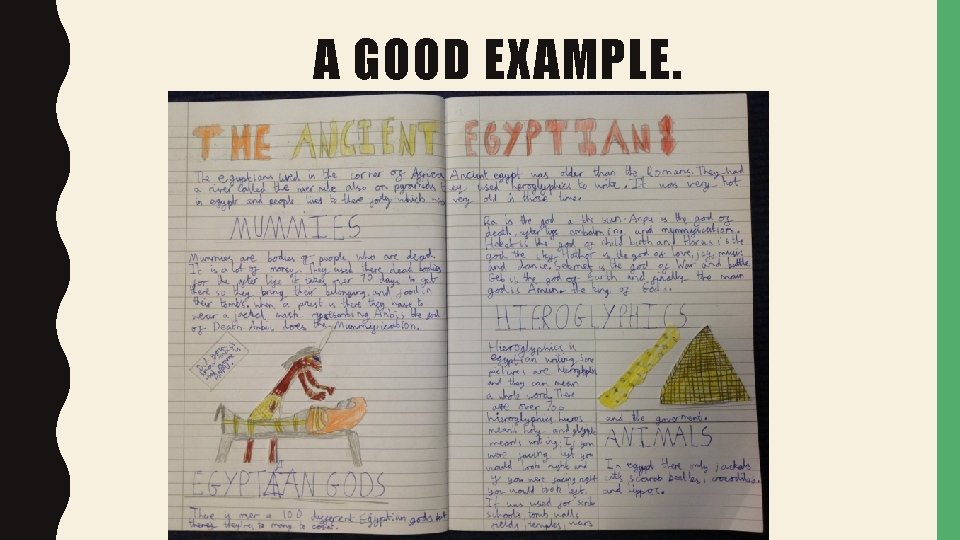 A GOOD EXAMPLE.
THE ANCIENT EGYPTIANS
The egyptians lived in the corner of Africa. Ancient egypt was older than the Romans. They had
a river called the river nile also on pyramids they used heroglyphics to write. It was very hot
in egypt and people lived to there forty which was very old in those times
MUMMIES
Mummies are bodies of people who are dead.
It is a lot of money. They used there dead bodies
for the after life it takes over 70 days to get
there so they bring their belonging and food in
their tombs. When a priest is there they have to
wear a jackel mask representing Anbis the god
of Death Anbis does the Mummyfication.
EGYPTAIAN GODS
There is over a 100 different Egyptian gods but
theres to many to count.
Ra is the god of the sun. Anpu is the god of
death, after life embalming and mummyfication.
is the god of child birth and Horus is the
god the sky. Hathor is the god of love, joy, music
and dance. Sekmet is the god of War and battle.
Geb is the god of Earth and finally the main
god is Amun the king of Gods.
HIEROGLYPHICS
Hieroglyphics is
egyptian writing, the
pictures are hieroglyphs
and they can mean
a whole word. There
are over 700
hieroglyphics hiero
means holy and glyph
means writing. If you
were facing left you
would look right and
if you were facing right
you would look left.
It was used for
schools, tomb walls,
fields, temples, wars
and the goverment.
ANIMALS
In egypt there only jackels
cats scarab beetles, crocodiles
and